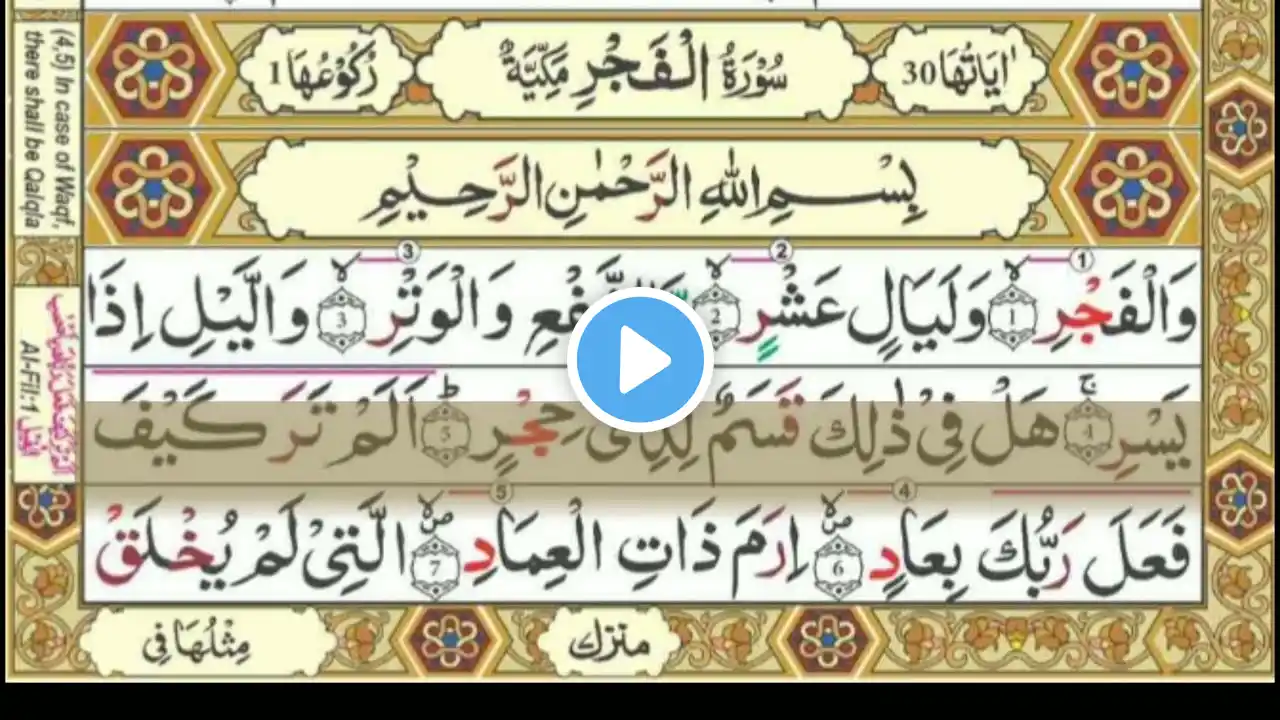 (4,5) In case of Waqf,
there shall be Qalqla
اٰيَاتُهَا 30
سُوْرَةُ الْفَجْرِ مَكِّيَّةٌ
رُكُوْعُهَا 1
بِسْمِ اللّٰهِ الرَّحْمٰنِ الرَّحِيْمِ
1 2 3
وَالْفَجْرِ 1 وَلَيَالٍ عَشْرٍ 2 وَالْوَتْرِ 3 وَالَّيْلِ اِذَا
يَسْرِ 4 هَلْ فِيْ ذٰلِكَ قَسَمٌ لِّذِيْ حِجْرٍ 5 اَلَمْ تَرَ كَيْفَ
4 5
فَعَلَ رَبُّكَ بِعَادٍ 6 اِرَمَ ذَاتِ الْعِمَادِ 7 الَّتِيْ لَمْ يُخْلَقْ
Al-Fil:1
مِثْلُهَا فِي
منزل